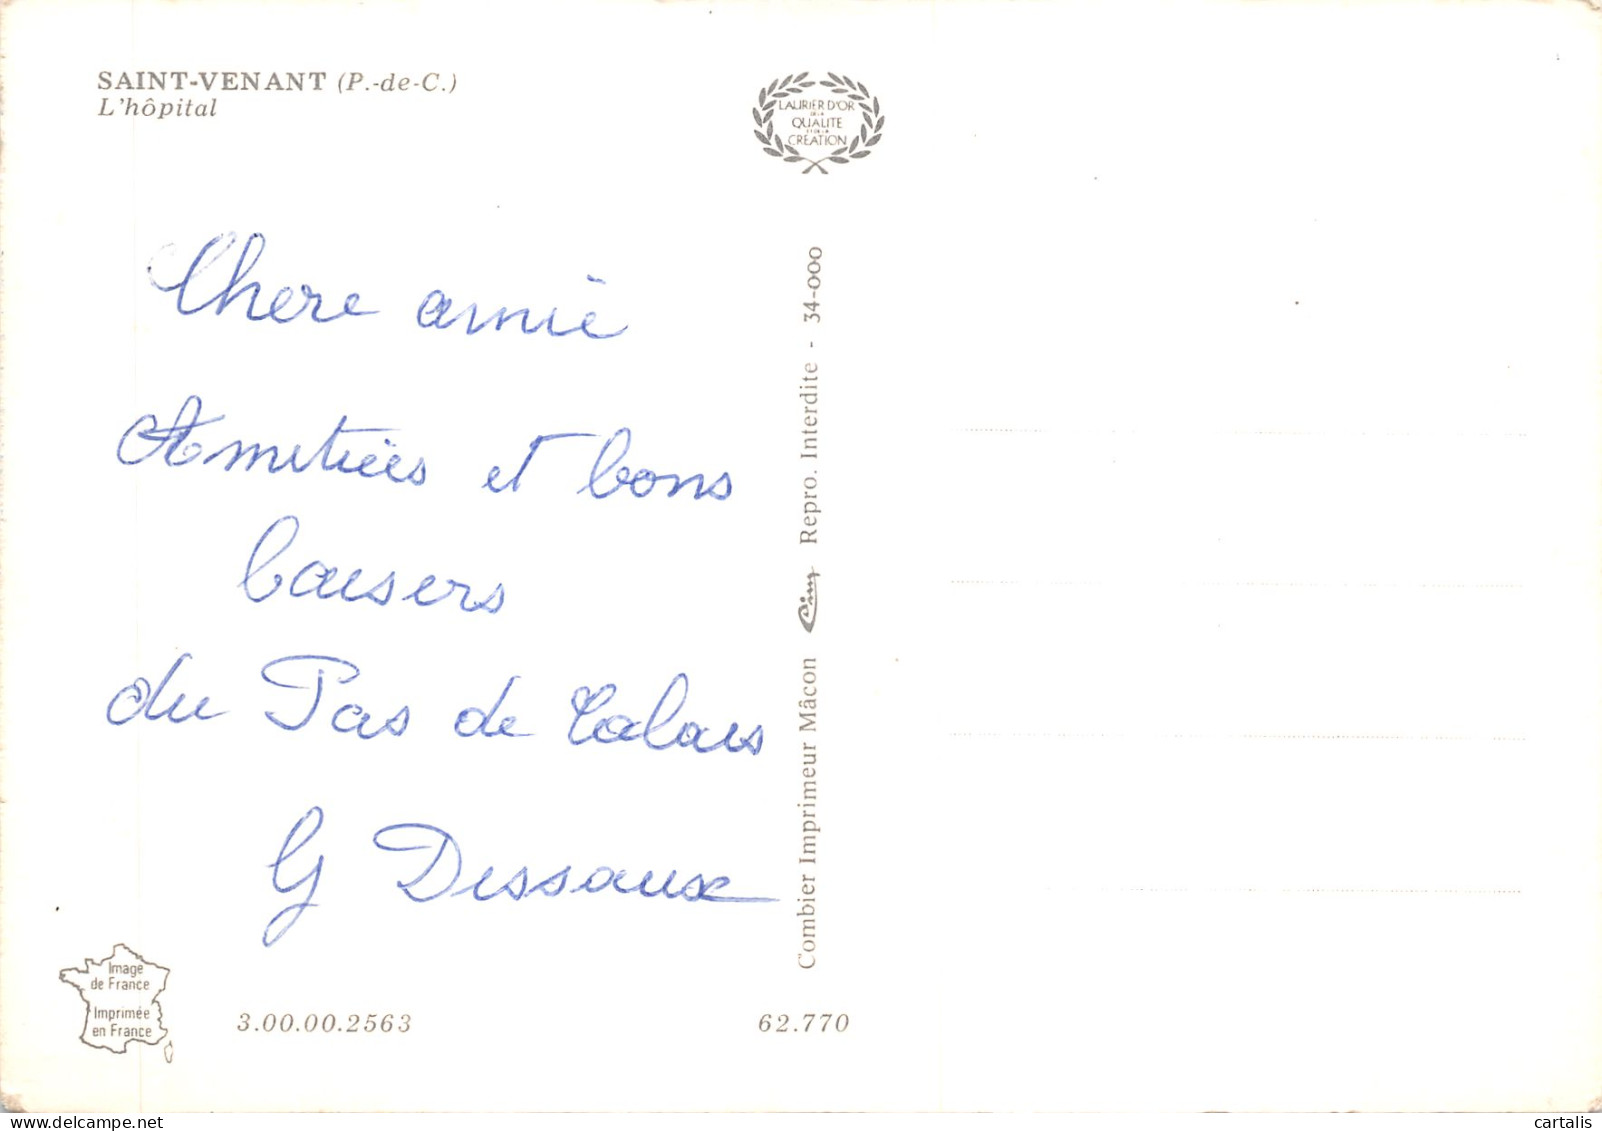 SAINT-VENANT (P.-de-C.)
L'hôpital
LAURIER D'OR
DE LA
QUALITE
ET DE LA
CREATION
Chere amie
Amitiées et bons
baisers
du Pas de Calais
G Dessaux
Combier Imprimeur Mâcon Cim Repro. Interdite - 34-000
Image
de France
Imprimée
en France
3.00.00.2563
62.770
cartalis